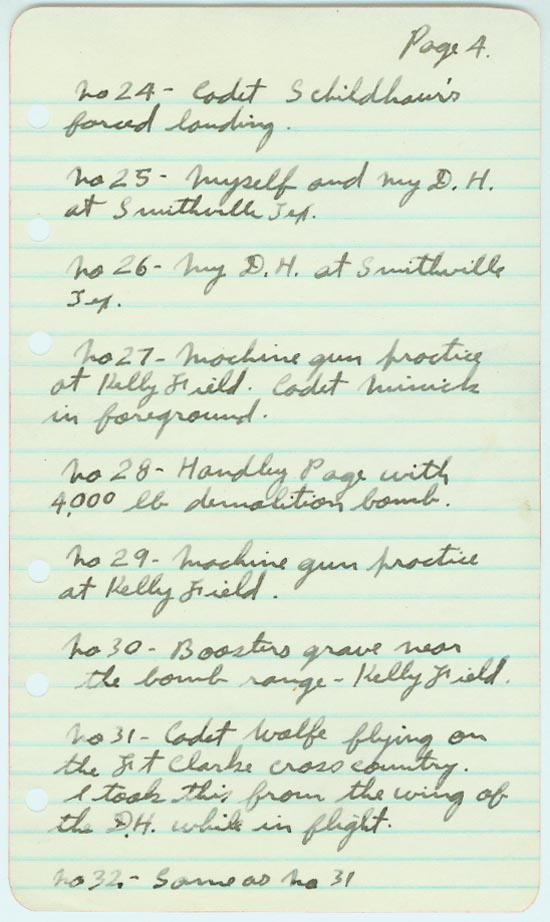 Page 4.
No 24 - Cadet Schildhaur's
forced landing.
No 25 - Myself and my D. H.
at Smithville Tex.
No 26 - My D. H. at Smithville
Tex.
No 27 - Machine gun practice
at Kelly Field. Cadet Minick
in foreground.
No 28 - Handley Page with
4,000 lb demolition bomb.
No 29 - Machine gun practice
at Kelly Field.
No 30 - Boosters grave near
the bomb range - Kelly Field.
No 31 - Cadet Wolfe flying on
the Ft Clarke cross country.
I took this from the wing of
the D.H. while in flight.
No 32. - Same as No 31